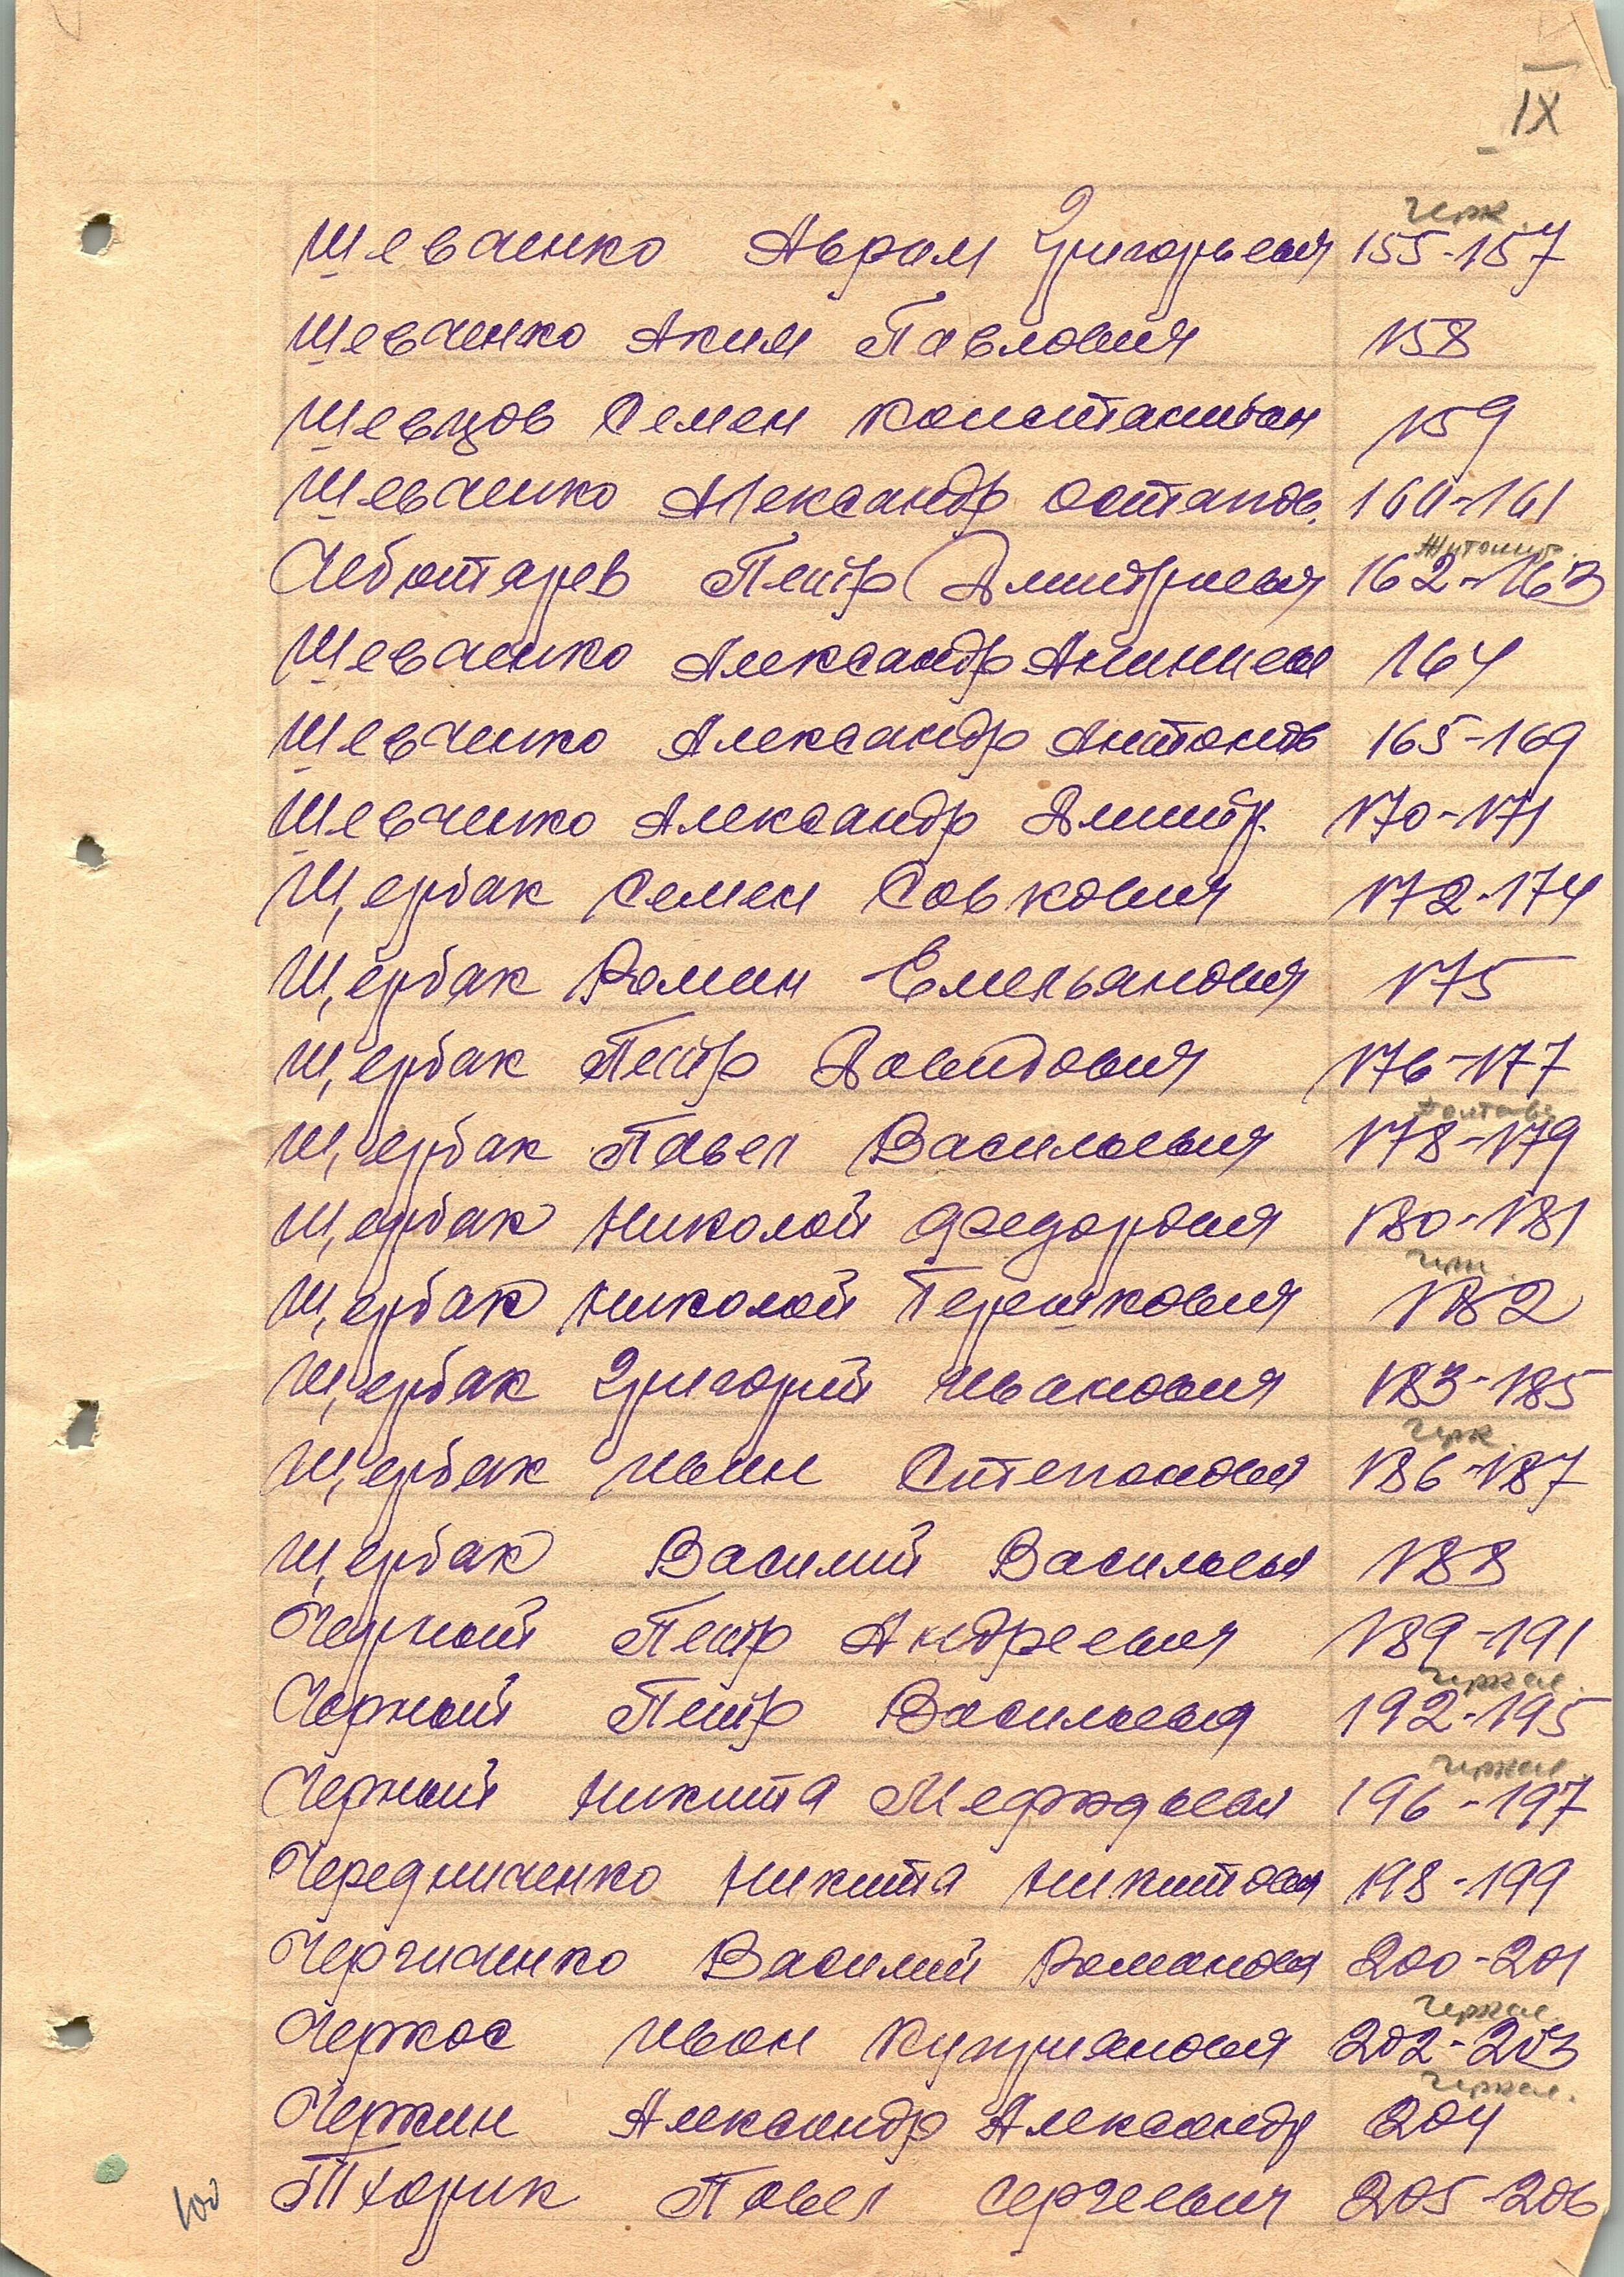 IX
Черк.
Шевченко Аврам Григорьевич 155-157
Шевченко Аким Павлович 158
Шевцов Семен Константин 159
Шевченко Александр Остапов. 160-161
Житомир.
Чеботарев Петр Дмитриевич 162-163
Шевченко Александр Ананиев 164
Шевченко Александр Антонов 165-169
Шевченко Александр Дмитр. 170-171
Щербак Семен Савкович 172-174
Щербак Роман Емельянович 175
Щербак Петр Давидович 176-177
Полтавс
Щербак Павел Васильевич 178-179
Щербак Николай Федорович 180-181
Щербак Николай Терешкович 182
Щербак Григорий Иванович 183-185
Черк.
Щербак Иван Степанович 186-187
Щербак Василий Васильев 188
Черный Петр Андреевич 189-191
Черкас.
Черный Петр Васильевич 192-195
Черкас.
Черный Никита 196-197
Чередниченко Никита Никитович 198-199
Василий Романович 200-201
Черкас.
Черкас Иван Куприянович 202-203
Черкас.
Черкин Александр Александр 204
Тхорик Павел Сергеевич 205-206
100